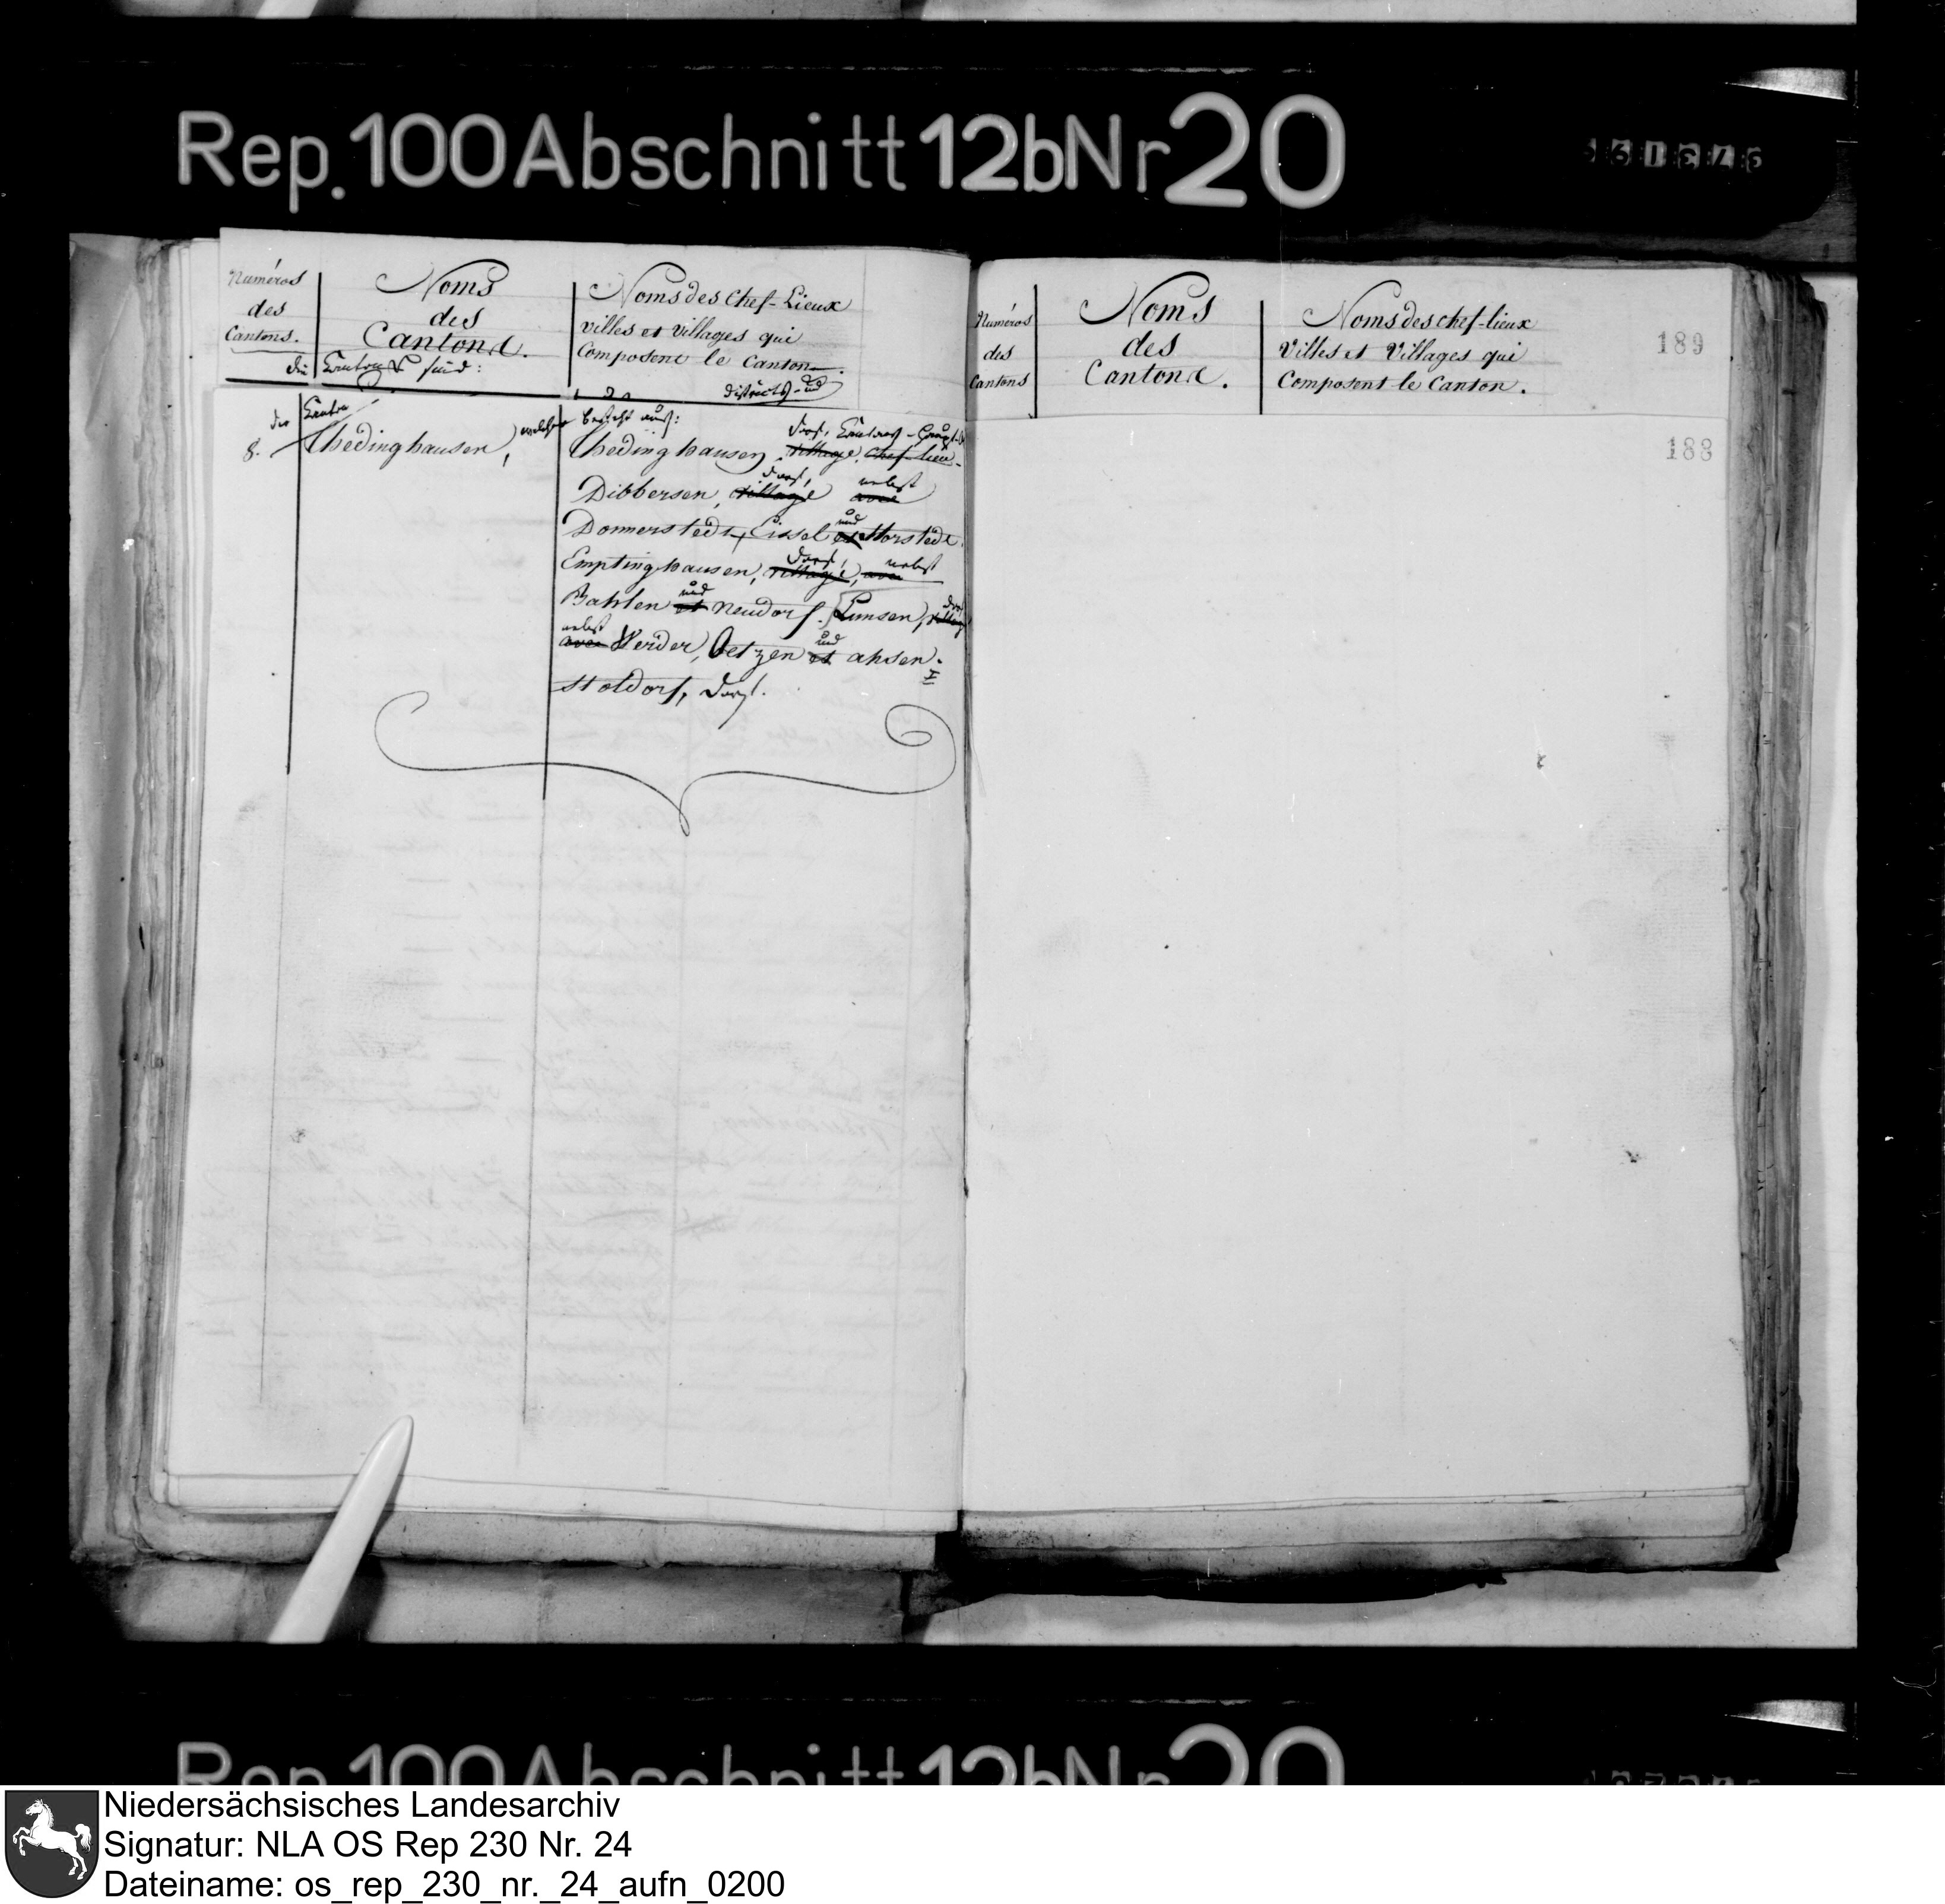 Rep. 100 Abschnitt 12b Nr 20
Numéros
des
Cantons.
Noms
des
Cantons.
Noms des Chef-Lieux
Villes et Villages qui
Composent le Canton.
die Cantons sind:
Districts- und
der Canton
besteht aus:
8.
Thedinghausen, welcher
Dorf, Cantons-Haupt-
Thedinghausen, village, chef-lieu.
Dorf, nebst
Dibbersen, village avec
und
Donnerstedt, Eissel et Horstedt.
Dorf, nebst
Emptinghausen, village, avec
und Dorf
Bahlen et Neudorf. Lunsen, village
nebst und
avec Werder, Oetzen et ahsen.
Holdorf, Dorf.
Numéros
des
Cantons
Noms
des
Cantons.
Noms des chef-lieux
Villes et Villages qui
Composent le Canton.
189
188
Rep. 100 Abschnitt 12b Nr 20
Niedersächsisches Landesarchiv
Signatur: NLA OS Rep 230 Nr. 24
Dateiname: os_rep_230_nr._24_aufn_0200